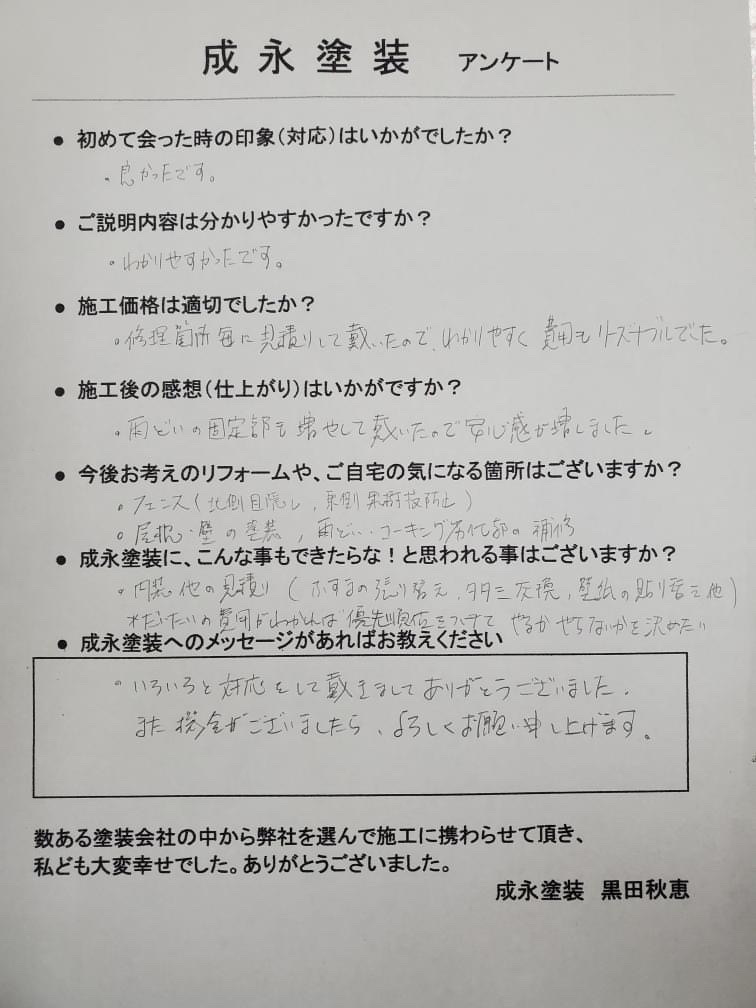 成永塗装 アンケート
● 初めて会った時の印象(対応)はいかがでしたか?
・良かったです。
● ご説明内容は分かりやすかったですか?
・わかりやすかったです。
● 施工価格は適切でしたか?
・修理箇所毎に見積りして戴いたので、わかりやすく費用もリーズナブルでした。
● 施工後の感想(仕上がり)はいかがですか?
・雨どいの固定部も増やして戴いたので安心感が増しました。
● 今後お考えのリフォームや、ご自宅の気になる箇所はございますか?
・フェンス(北側目隠し、東側
防止)
・屋根・壁の塗装、雨どい・コーキング劣化部の補修
● 成永塗装に、こんな事もできたらな!と思われる事はございますか?
・内装他の見積り(ふすまの張り替え、タタミ交換、壁紙の貼り替え他)
*だいたいの費用がわかれば優先順位をつけて やるかやらないかを決めたい
● 成永塗装へのメッセージがあればお教えください
・いろいろと対応をして戴きましてありがとうございました。
また機会がございましたら、よろしくお願い申し上げます。
数ある塗装会社の中から弊社を選んで施工に携わらせて頂き、
私ども大変幸せでした。ありがとうございました。
成永塗装 黒田秋恵